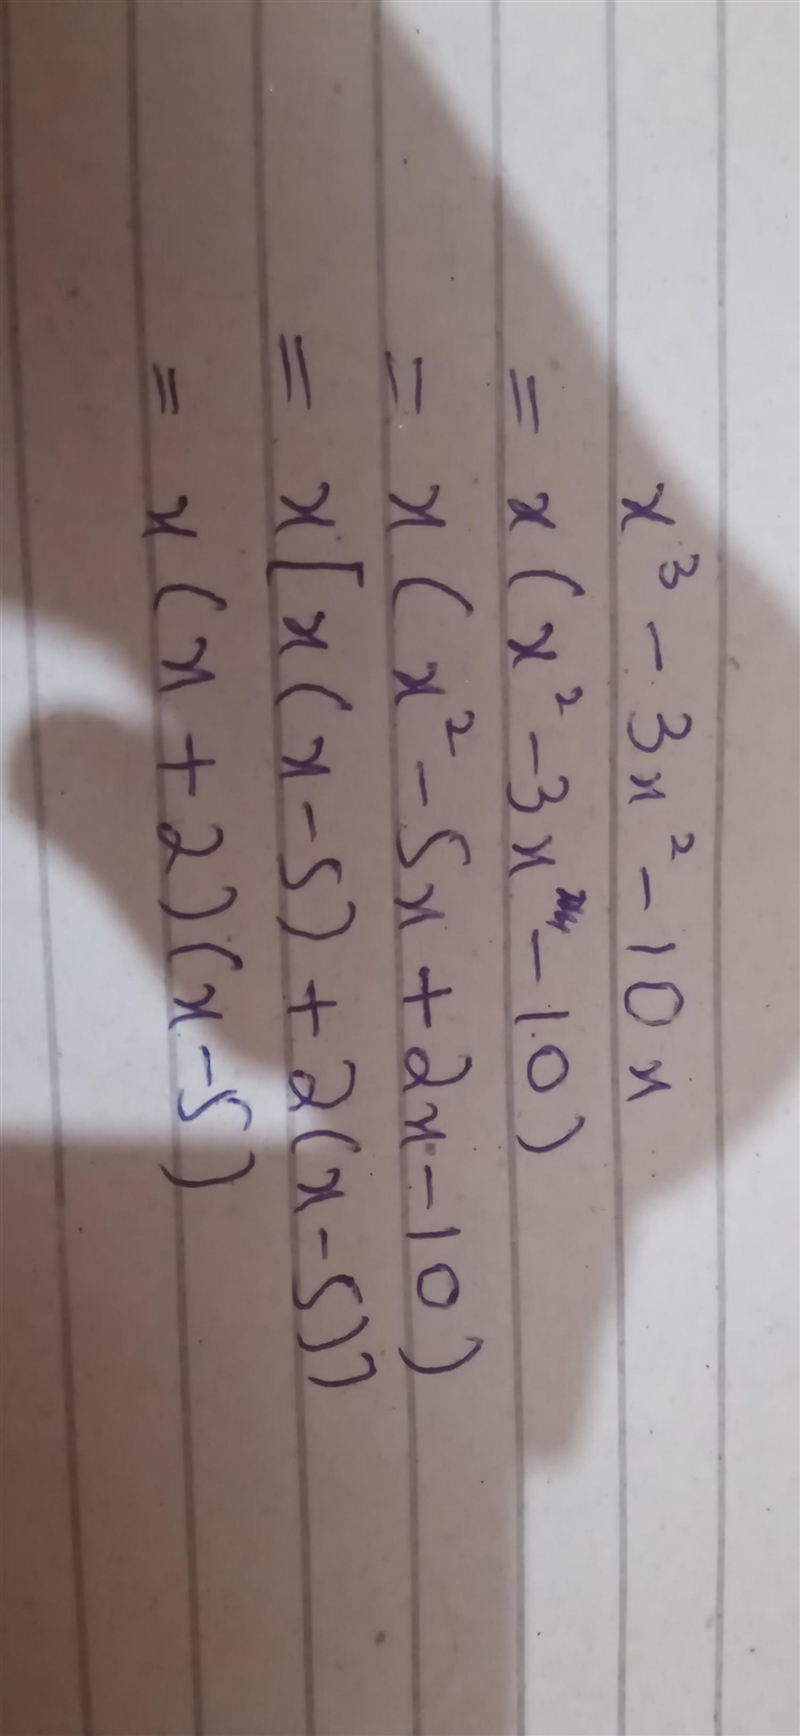 x³ - 3x² - 10x
= x(x² - 3x - 10)
= x(x² - 5x + 2x - 10)
= x[x(x - 5) + 2(x - 5)]
= x(x + 2)(x - 5)